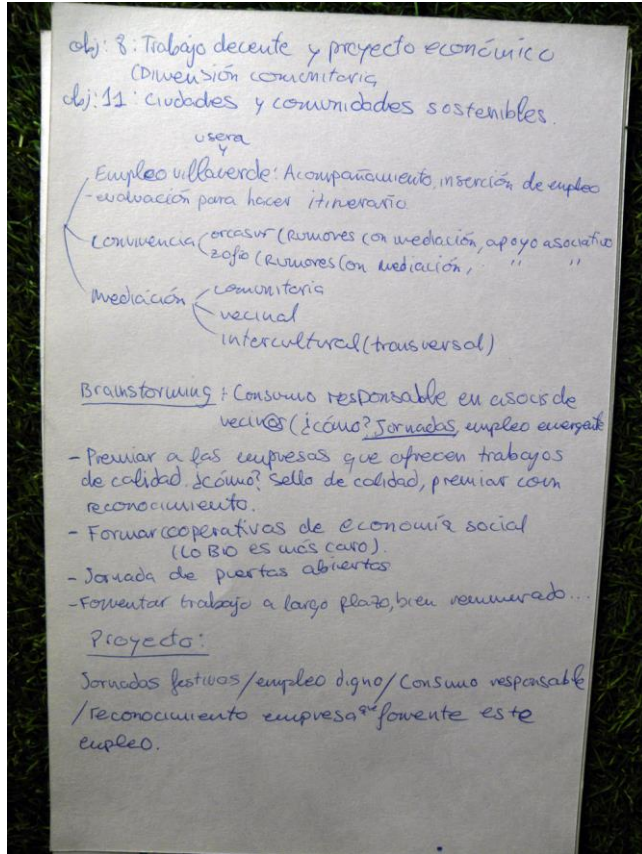 obj: 8: Trabajo decente y proyecto económico
(Dimensión comunitaria
obj: 11: ciudades y comunidades sostenibles.
usera
y
Empleo villaverde: Acompañamiento, inserción de empleo
- evaluación para hacer itinerario
Convivencia (orcasur (Rumores con mediación, apoyo asociativo
zofio (Rumores con mediación, " "
mediación comunitaria
vecinal
intercultural (transversal)
Brainstorming: Consumo responsable en asocs de
vecin@s (¿cómo? Jornadas, empleo emergente
- Premiar a las empresas que ofrecen trabajos
de calidad. ¿cómo? Sello de calidad, premiar con
reconocimiento.
- Formar cooperativas de economía social
(Lo BIO es más caro).
- Jornada de puertas abiertas
- Fomentar trabajo a largo plazo, bien remunerado...
Proyecto:
Jornadas festivas / empleo digno / Consumo responsable
/ reconocimiento empresa que fomente este
empleo.